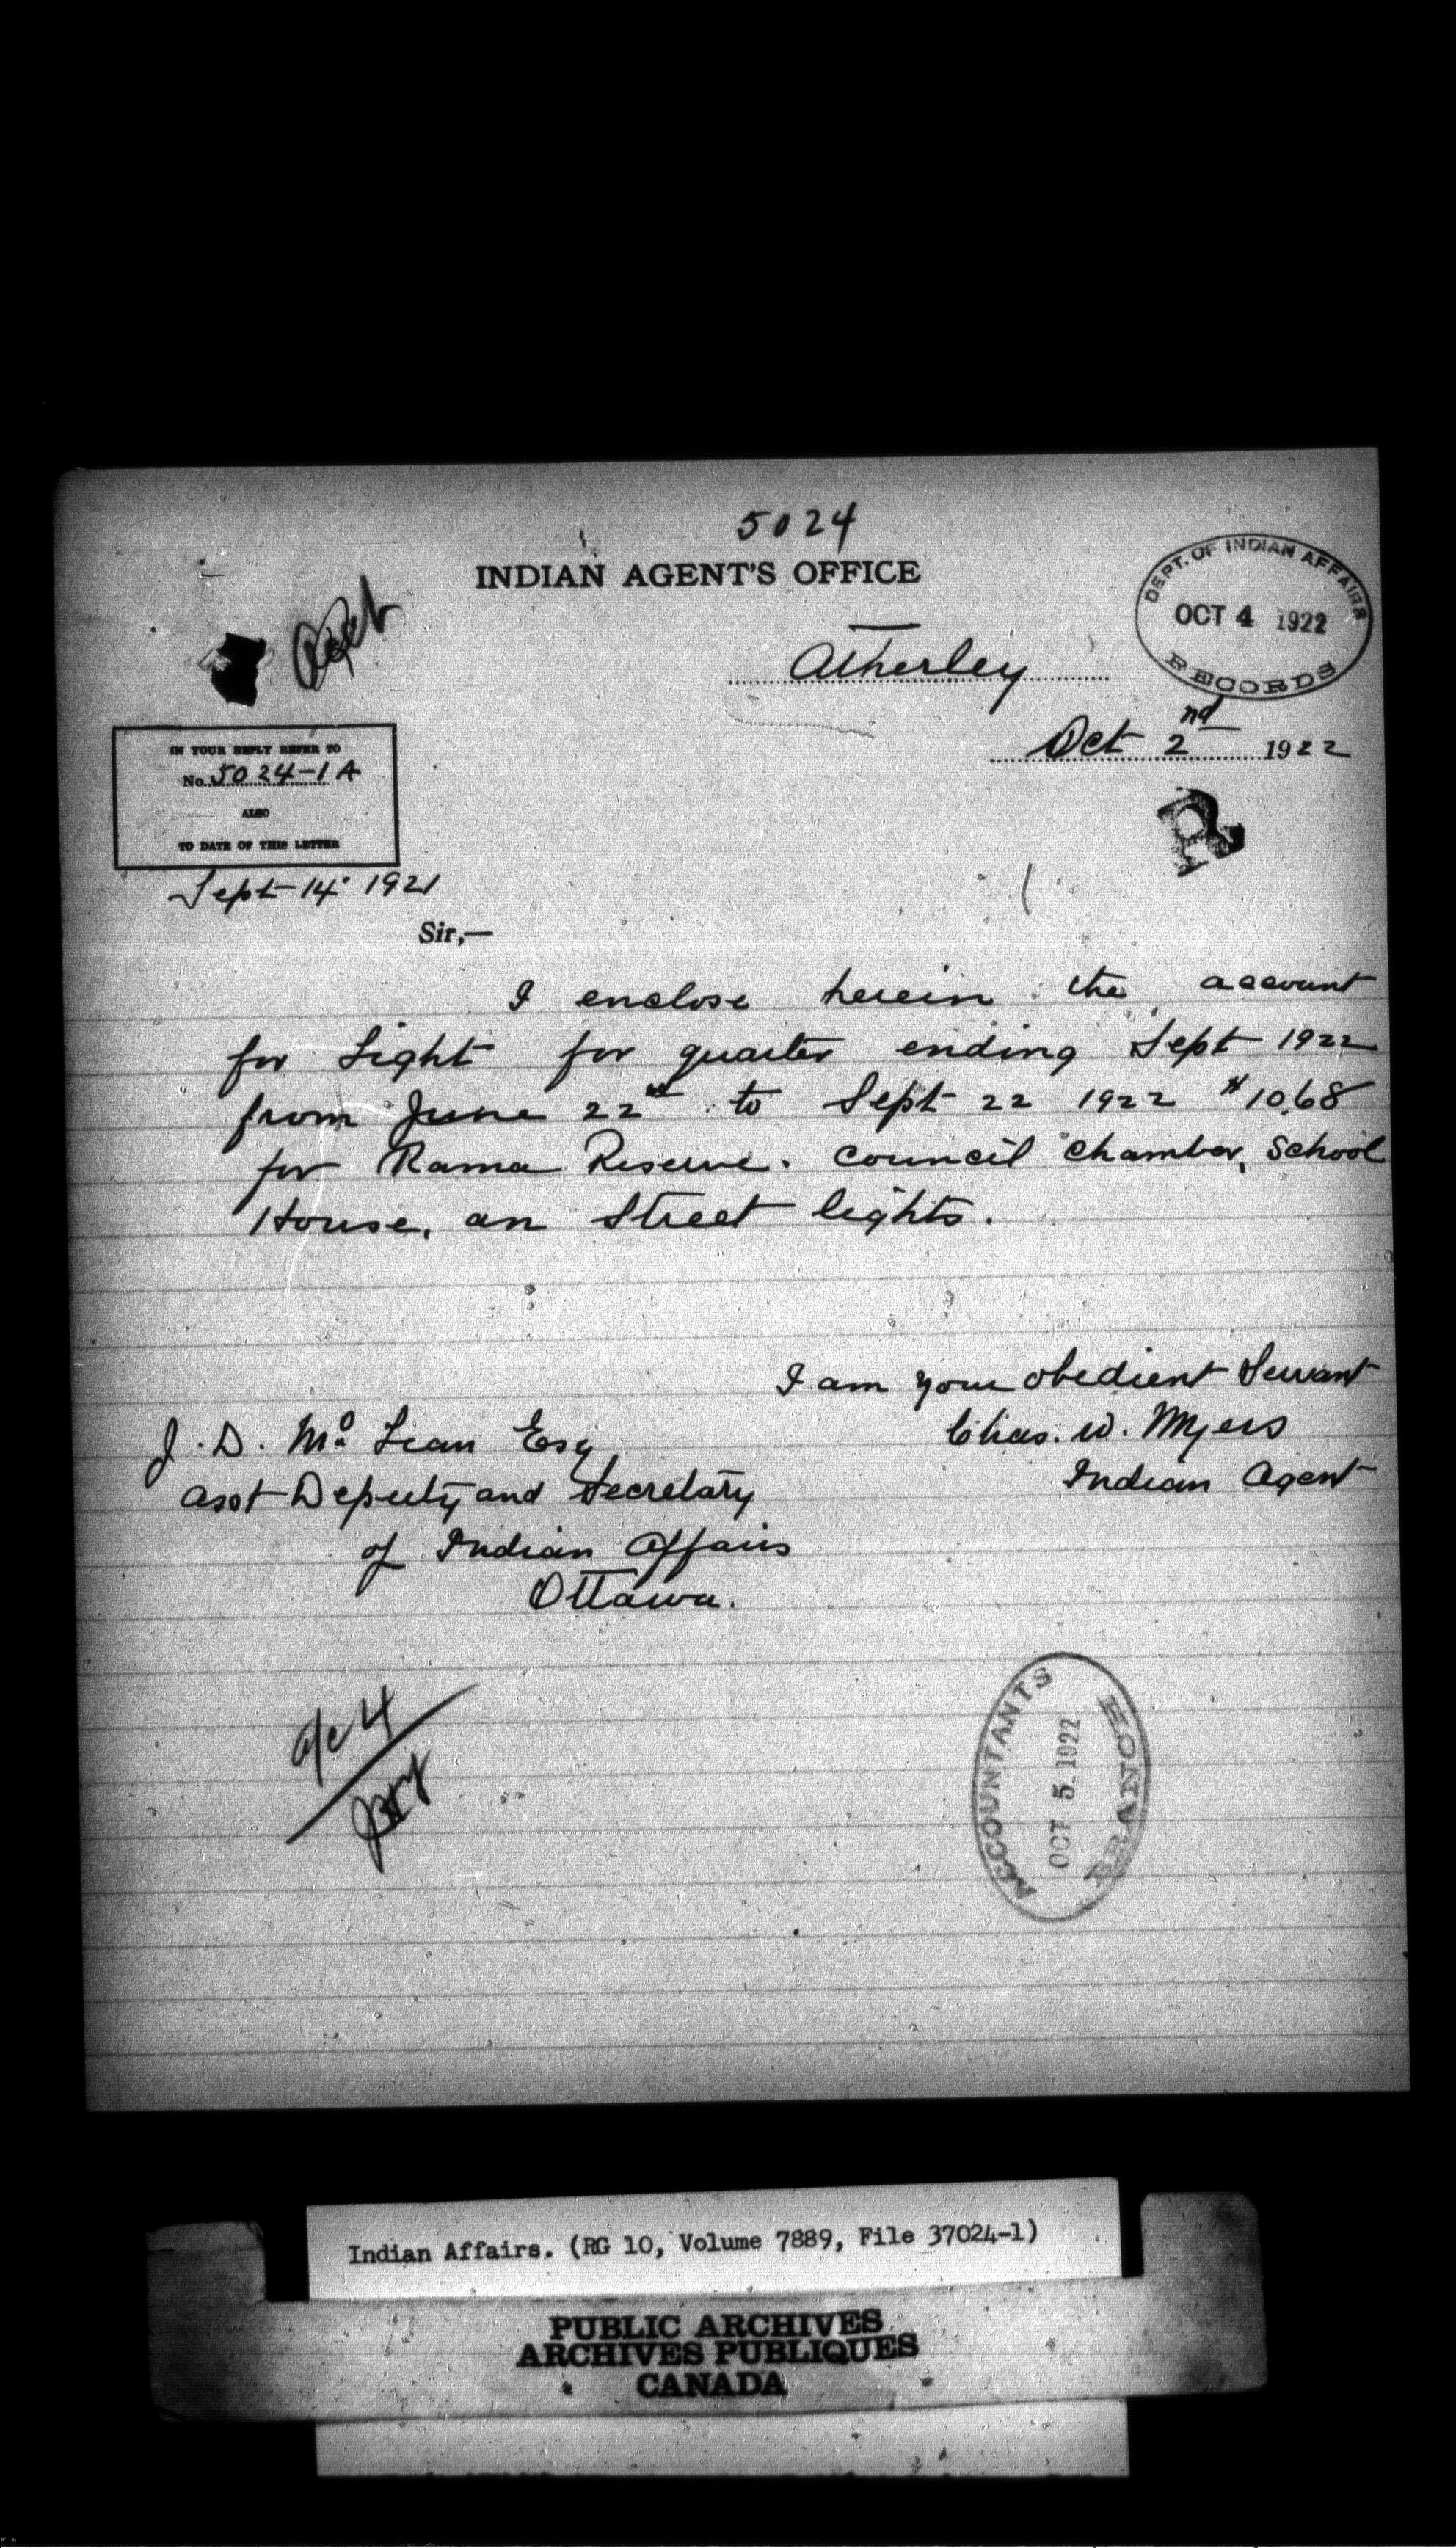 5024
INDIAN AGENT'S OFFICE
DEPT. OF INDIAN AFFAIRS
OCT 4 1922
RECORDS
Atherley
Oct 2nd 1922
IN YOUR REPLY REFER TO
No. 5024-1A
ALSO
TO DATE OF THIS LETTER
Sept 14 1921
R
Sir,—
I enclose herein the account
for Light for quarter ending Sept 1922
from June 22nd to Sept 22 1922 $10.68
for Rama Reserve. Council Chamber, School
House, an Street lights.
I am your obedient Servant
Chas. W. Myers
Indian Agent
J. D. McLean Esq
Asst Deputy and Secretary
of Indian Affairs
Ottawa.
a/c 4
ACCOUNTANTS
OCT 5 1922
BRANCH
Indian Affairs. (RG 10, Volume 7889, File 37024-1)
PUBLIC ARCHIVES
ARCHIVES PUBLIQUES
CANADA